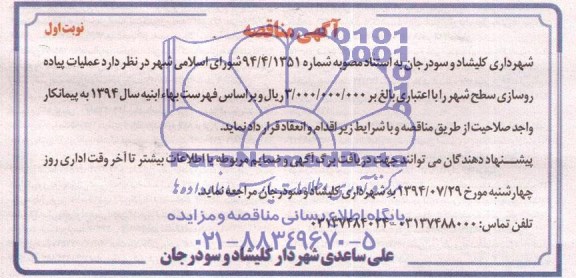 آگهی مناقصه
نوبت اول
شهرداری کلیشاد و سودرجان به استناد مصوبه شماره ۹۴/۴/۱۳۵۱ شورای اسلامی شهر در نظر دارد عملیات پیاده
روسازی سطح شهر را با اعتباری بالغ بر ۳/۰۰۰/۰۰۰/۰۰۰ ریال و بر اساس فهرست بهاء ابنیه سال ۱۳۹۴ به پیمانکار
واجد صلاحیت از طریق مناقصه و با شرایط زیر اقدام و انعقاد قرارداد نماید.
پیشنهاد دهندگان می توانند جهت دریافت برگ آگهی و ضمایم مربوطه یا اطلاعات بیشتر تا آخر وقت اداری روز
چهارشنبه مورخ ۱۳۹۴/۰۷/۲۹ به شهرداری کلیشاد و سودرجان مراجعه نماید.
تلفن تماس: ۰۳۱۳۷۴۸۸۰۰۰
پایگاه اطلاع رسانی مناقصه و مزایده
۰۲۱-۸۸۳۴۹۶۷۰-۵
علی ساعدی شهردار کلیشاد و سودرجان